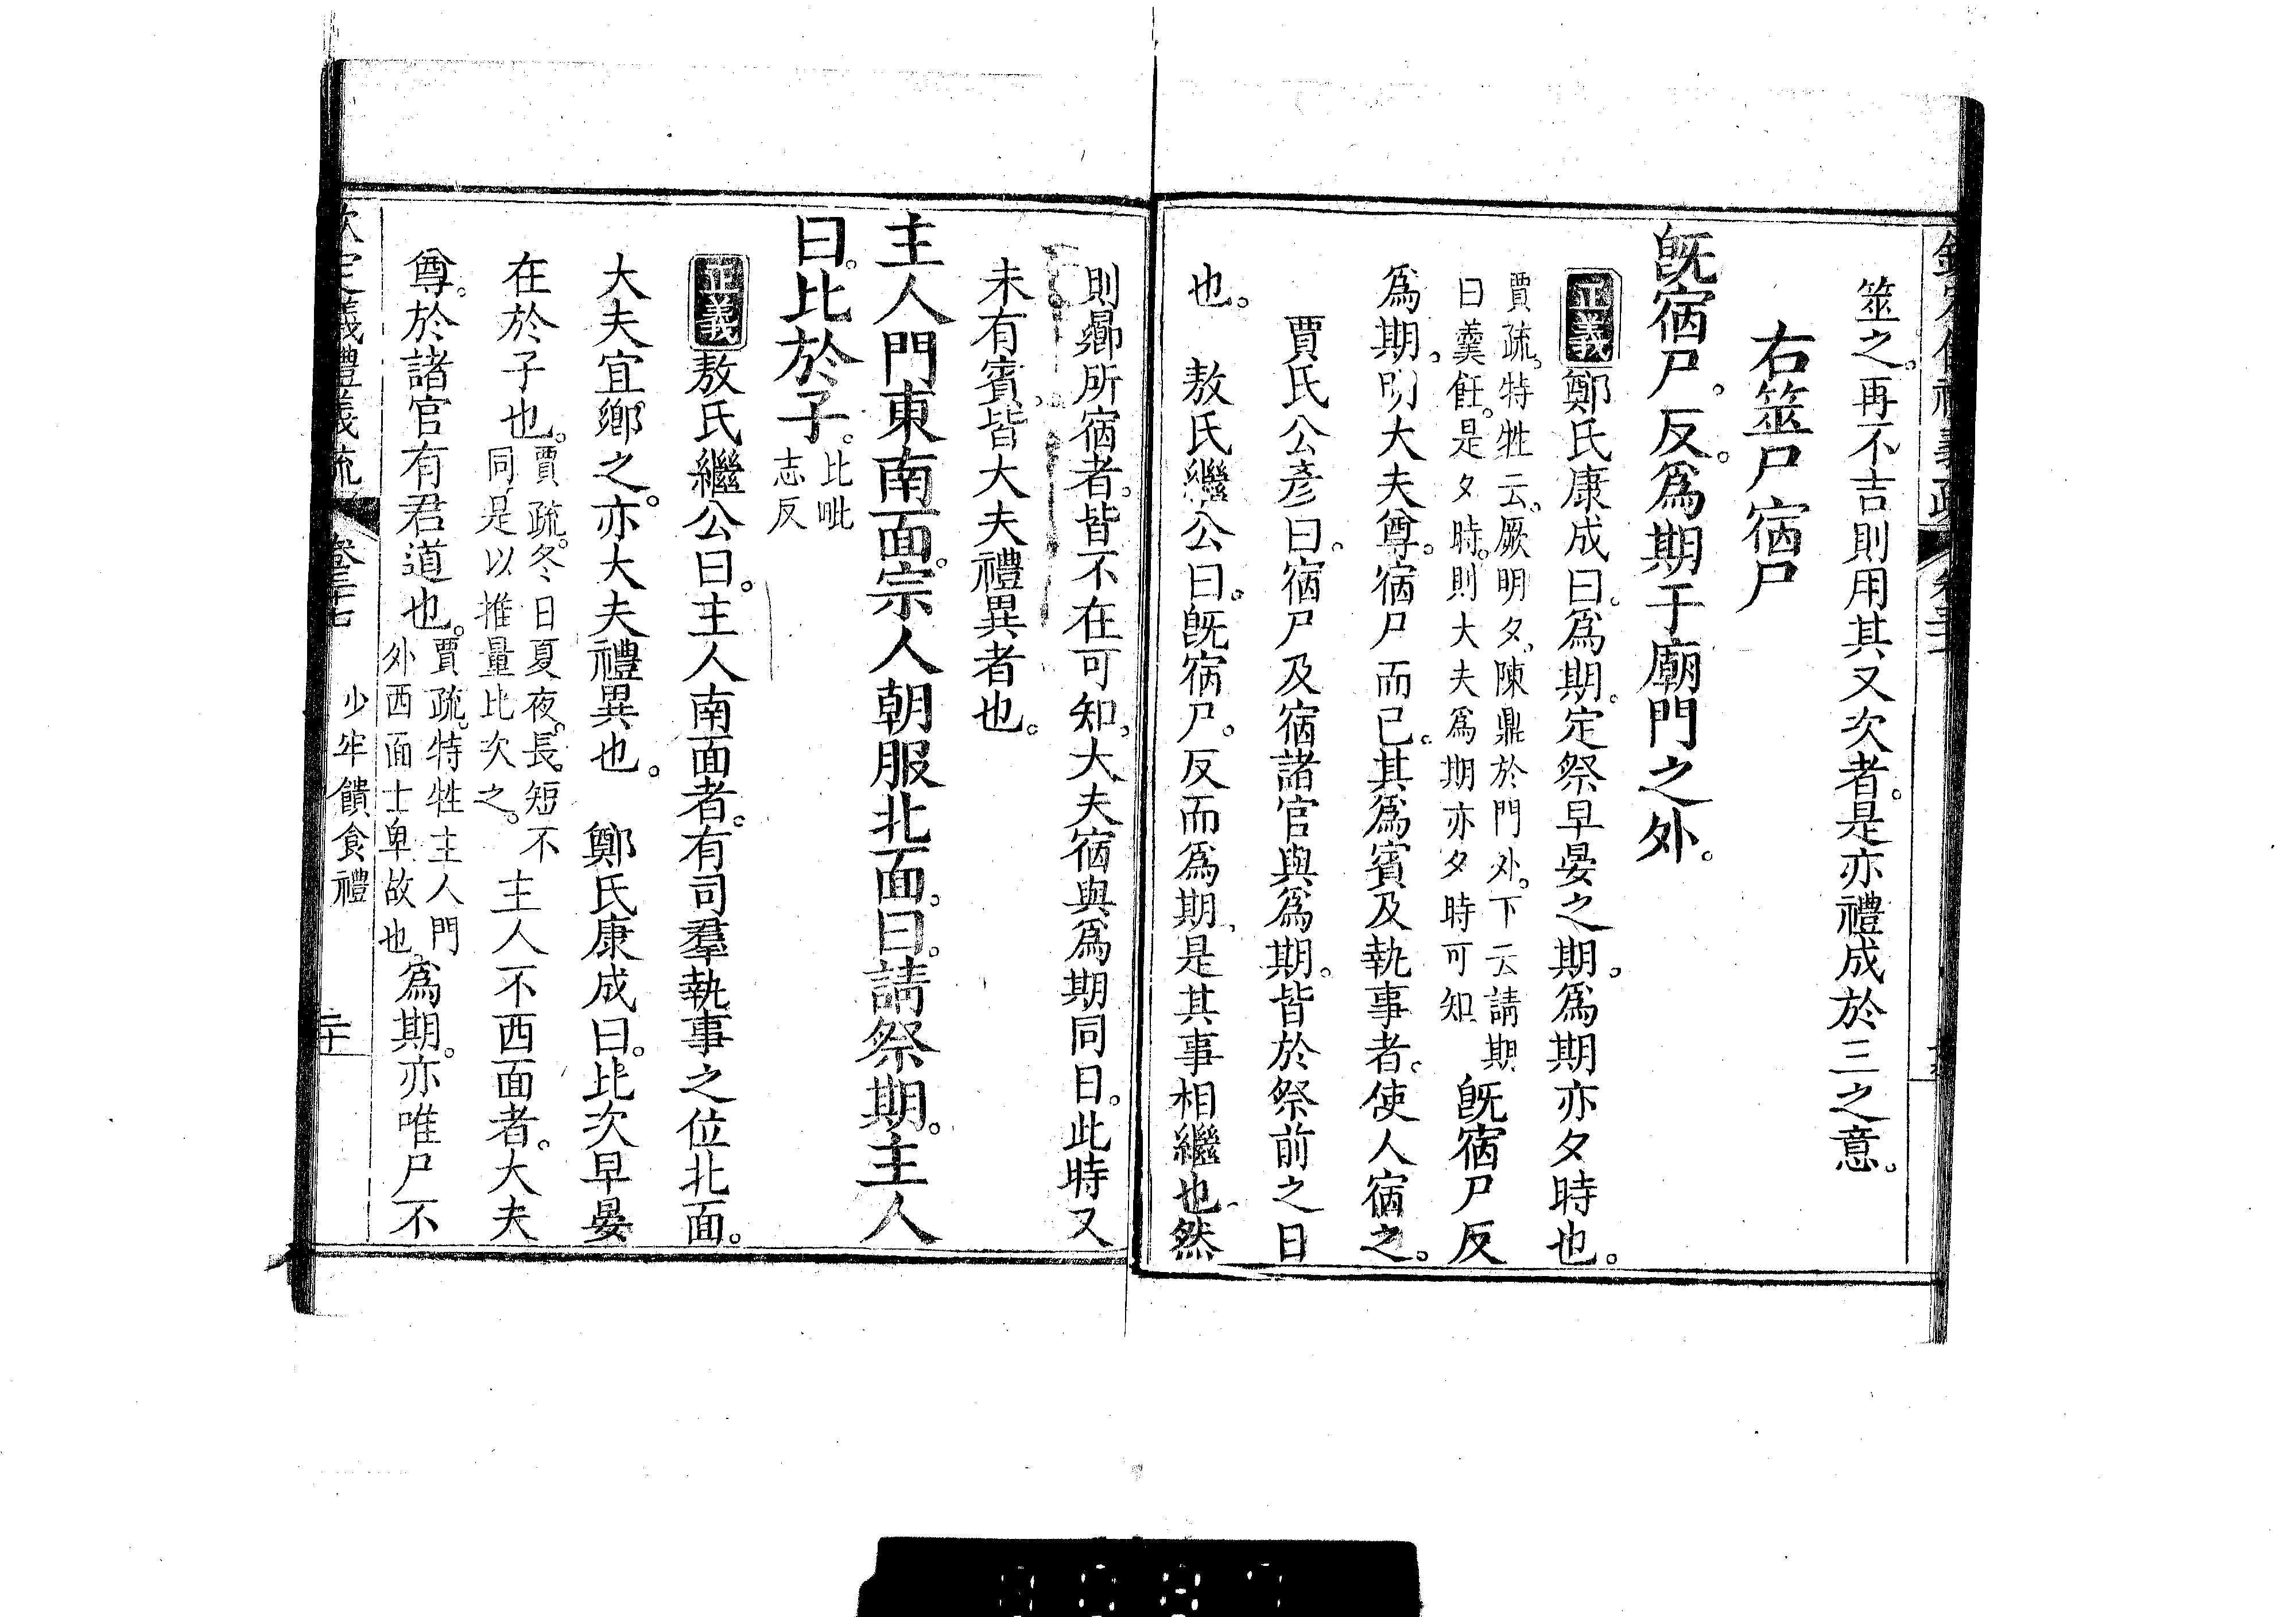 筮之。再不吉則用其又次者。是亦禮成於三之意。
右筮尸宿尸
旣宿尸。反。爲期于廟門之外。
正義鄭氏康成曰。爲期。定祭早晏之期。爲期亦夕時也。
賈疏。特牲云。厥明夕。陳鼎於門外。下云請期
曰羹飪。是夕時。則大夫爲期亦夕時可知
旣宿尸反
爲期。明大夫尊。宿尸而已。其爲賓及執事者。使人宿之。
賈氏公彥曰。宿尸及宿諸官與爲期。皆於祭前之日
也。敖氏繼公曰。旣宿尸。反而爲期。是其事相繼也。然
則鄉所宿者。皆不在可知。大夫宿與爲期同日。此時又
未有賓。皆大夫禮異者也。
主人門東南面。宗人朝服北面。曰。請祭期。主人
曰。比於子。
比毗
志反
正義敖氏繼公曰。主人南面者。有司羣執事之位北面。
大夫宜鄉之。亦大夫禮異也。鄭氏康成曰。比次早晏
在於子也。
賈疏。冬日夏夜。長短不
同。是以推量比次之。
主人不西面者。大夫
尊。於諸官有君道也。
賈疏。特牲主人門
外西面士卑故也。
爲期。亦唯尸不
欽定儀禮義疏
卷三十七
少牢饋食禮
二十